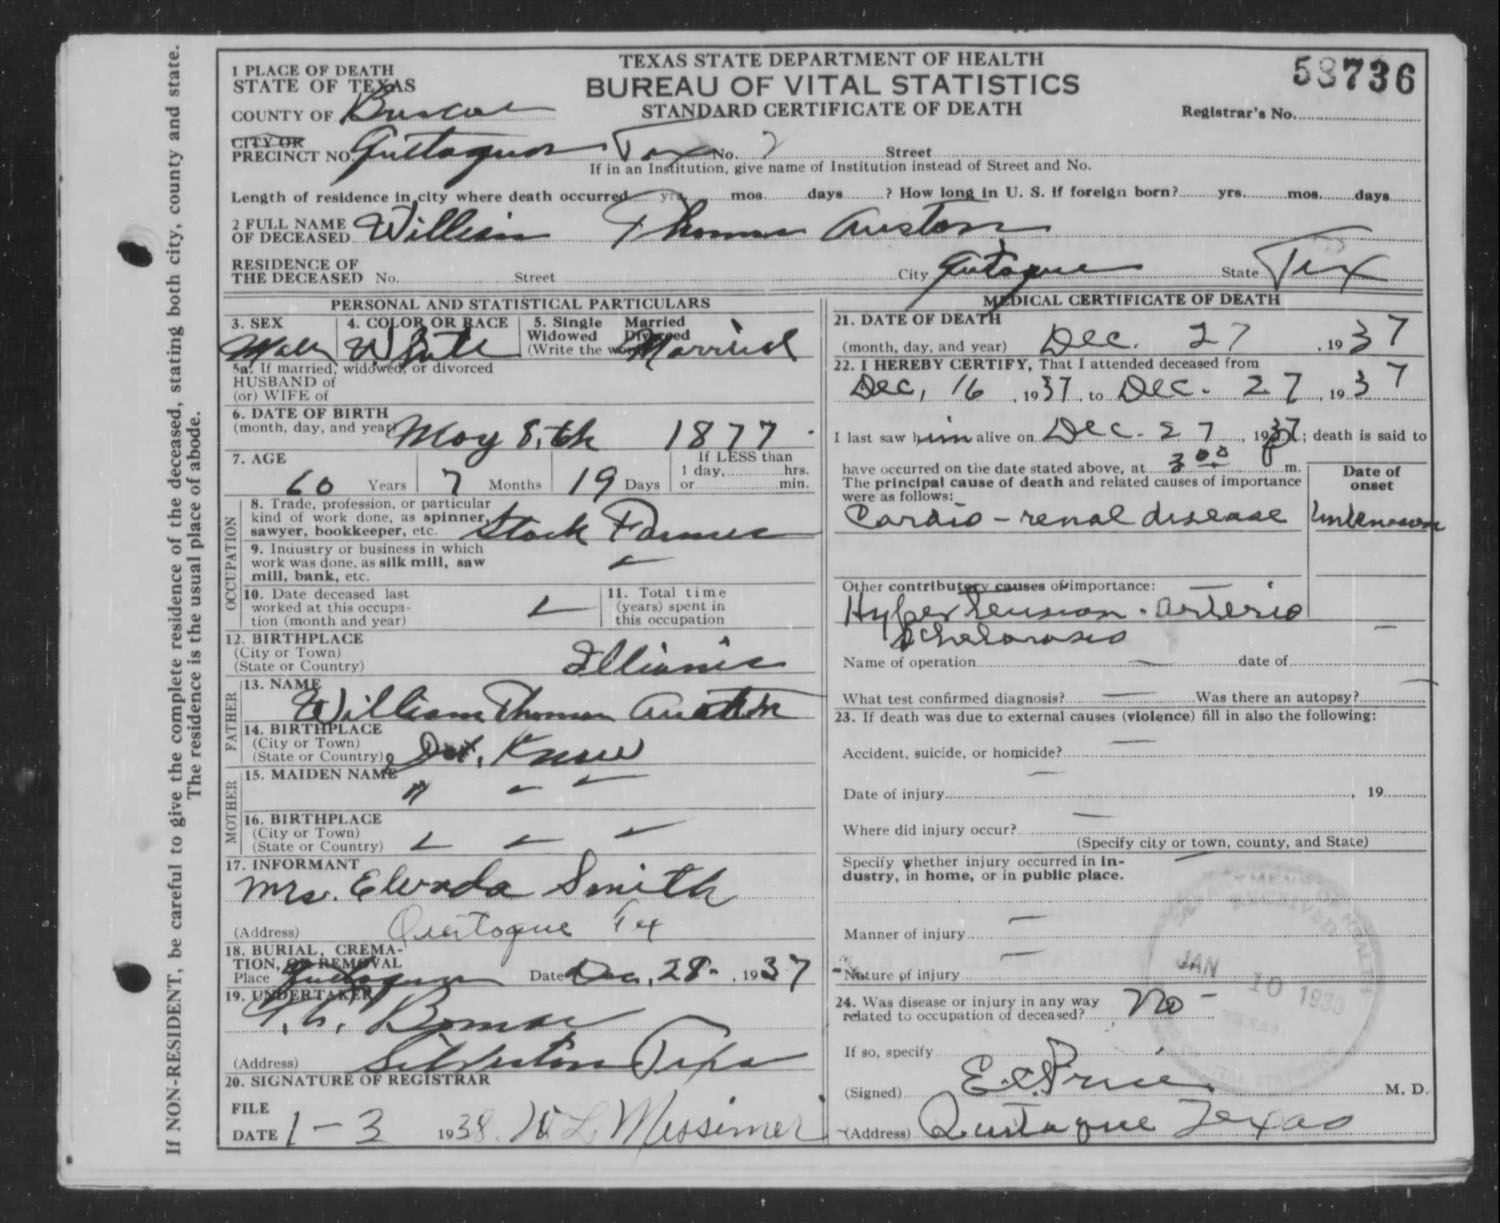 If NON-RESIDENT, be careful to give the complete residence of the deceased, stating both city, county and state.
The residence is the usual place of abode.
TEXAS STATE DEPARTMENT OF HEALTH
BUREAU OF VITAL STATISTICS
STANDARD CERTIFICATE OF DEATH
58736
Registrar's No.
1 PLACE OF DEATH
STATE OF TEXAS
COUNTY OF Briscoe
CITY OR
PRECINCT NO. Tex No. 2 Street
If in an Institution, give name of Institution instead of Street and No.
Length of residence in city where death occurred yrs. mos. days ? How long in U. S. if foreign born? yrs. mos. days
2 FULL NAME
OF DECEASED William Thomas Auston
RESIDENCE OF
THE DECEASED No. Street City State Tex
PERSONAL AND STATISTICAL PARTICULARS
3. SEX Male
4. COLOR OR RACE White
5. Single Married
Widowed Divorced
(Write the word) Married
5a. If married, widowed, or divorced
HUSBAND of
(or) WIFE of
6. DATE OF BIRTH
(month, day, and year) May 8.th 1877
7. AGE
60 Years 7 Months 19 Days
If LESS than
1 day, hrs.
or min.
OCCUPATION
8. Trade, profession, or particular
kind of work done, as spinner,
sawyer, bookkeeper, etc. Stock Farmer
9. Industry or business in which
work was done, as silk mill, saw
mill, bank, etc.
10. Date deceased last
worked at this occupa-
tion (month and year)
11. Total time
(years) spent in
this occupation
12. BIRTHPLACE
(City or Town)
(State or Country) Illianis
FATHER
13. NAME
William Thomas Auston
14. BIRTHPLACE
(City or Town)
(State or Country) Dont Know
MOTHER
15. MAIDEN NAME
"
16. BIRTHPLACE
(City or Town)
(State or Country)
17. INFORMANT
Mrs. Elvada Smith
(Address) Quitaque Tx
18. BURIAL, CREMA-
TION, OR REMOVAL
Place Date Dec, 28- , 1937
19. UNDERTAKER
Bomar
(Address) Silverton Texas
20. SIGNATURE OF REGISTRAR
FILE
DATE 1-3 1938. L. Messimer
MEDICAL CERTIFICATE OF DEATH
21. DATE OF DEATH
(month, day, and year) Dec. 27 , 1937
22. I HEREBY CERTIFY, That I attended deceased from
Dec, 16 , 1937, to Dec. 27 , 1937
I last saw him alive on Dec. 27 , 1937; death is said to
have occurred on the date stated above, at 3 00 P m.
The principal cause of death and related causes of importance
were as follows:
Date of
onset
Cardio-renal disease Unknown
Other contributory causes of importance:
Hypertension - arterio
schelorosis
Name of operation date of
What test confirmed diagnosis? Was there an autopsy?
23. If death was due to external causes (violence) fill in also the following:
Accident, suicide, or homicide?
Date of injury , 19
Where did injury occur?
(Specify city or town, county, and State)
Specify whether injury occurred in in-
dustry, in home, or in public place.
Manner of injury
Nature of injury
24. Was disease or injury in any way
related to occupation of deceased? No -
If so, specify
(Signed) E.C. Price M. D.
(Address) Quitaque Texas
RECEIVED
JAN 10 1938
TEXAS